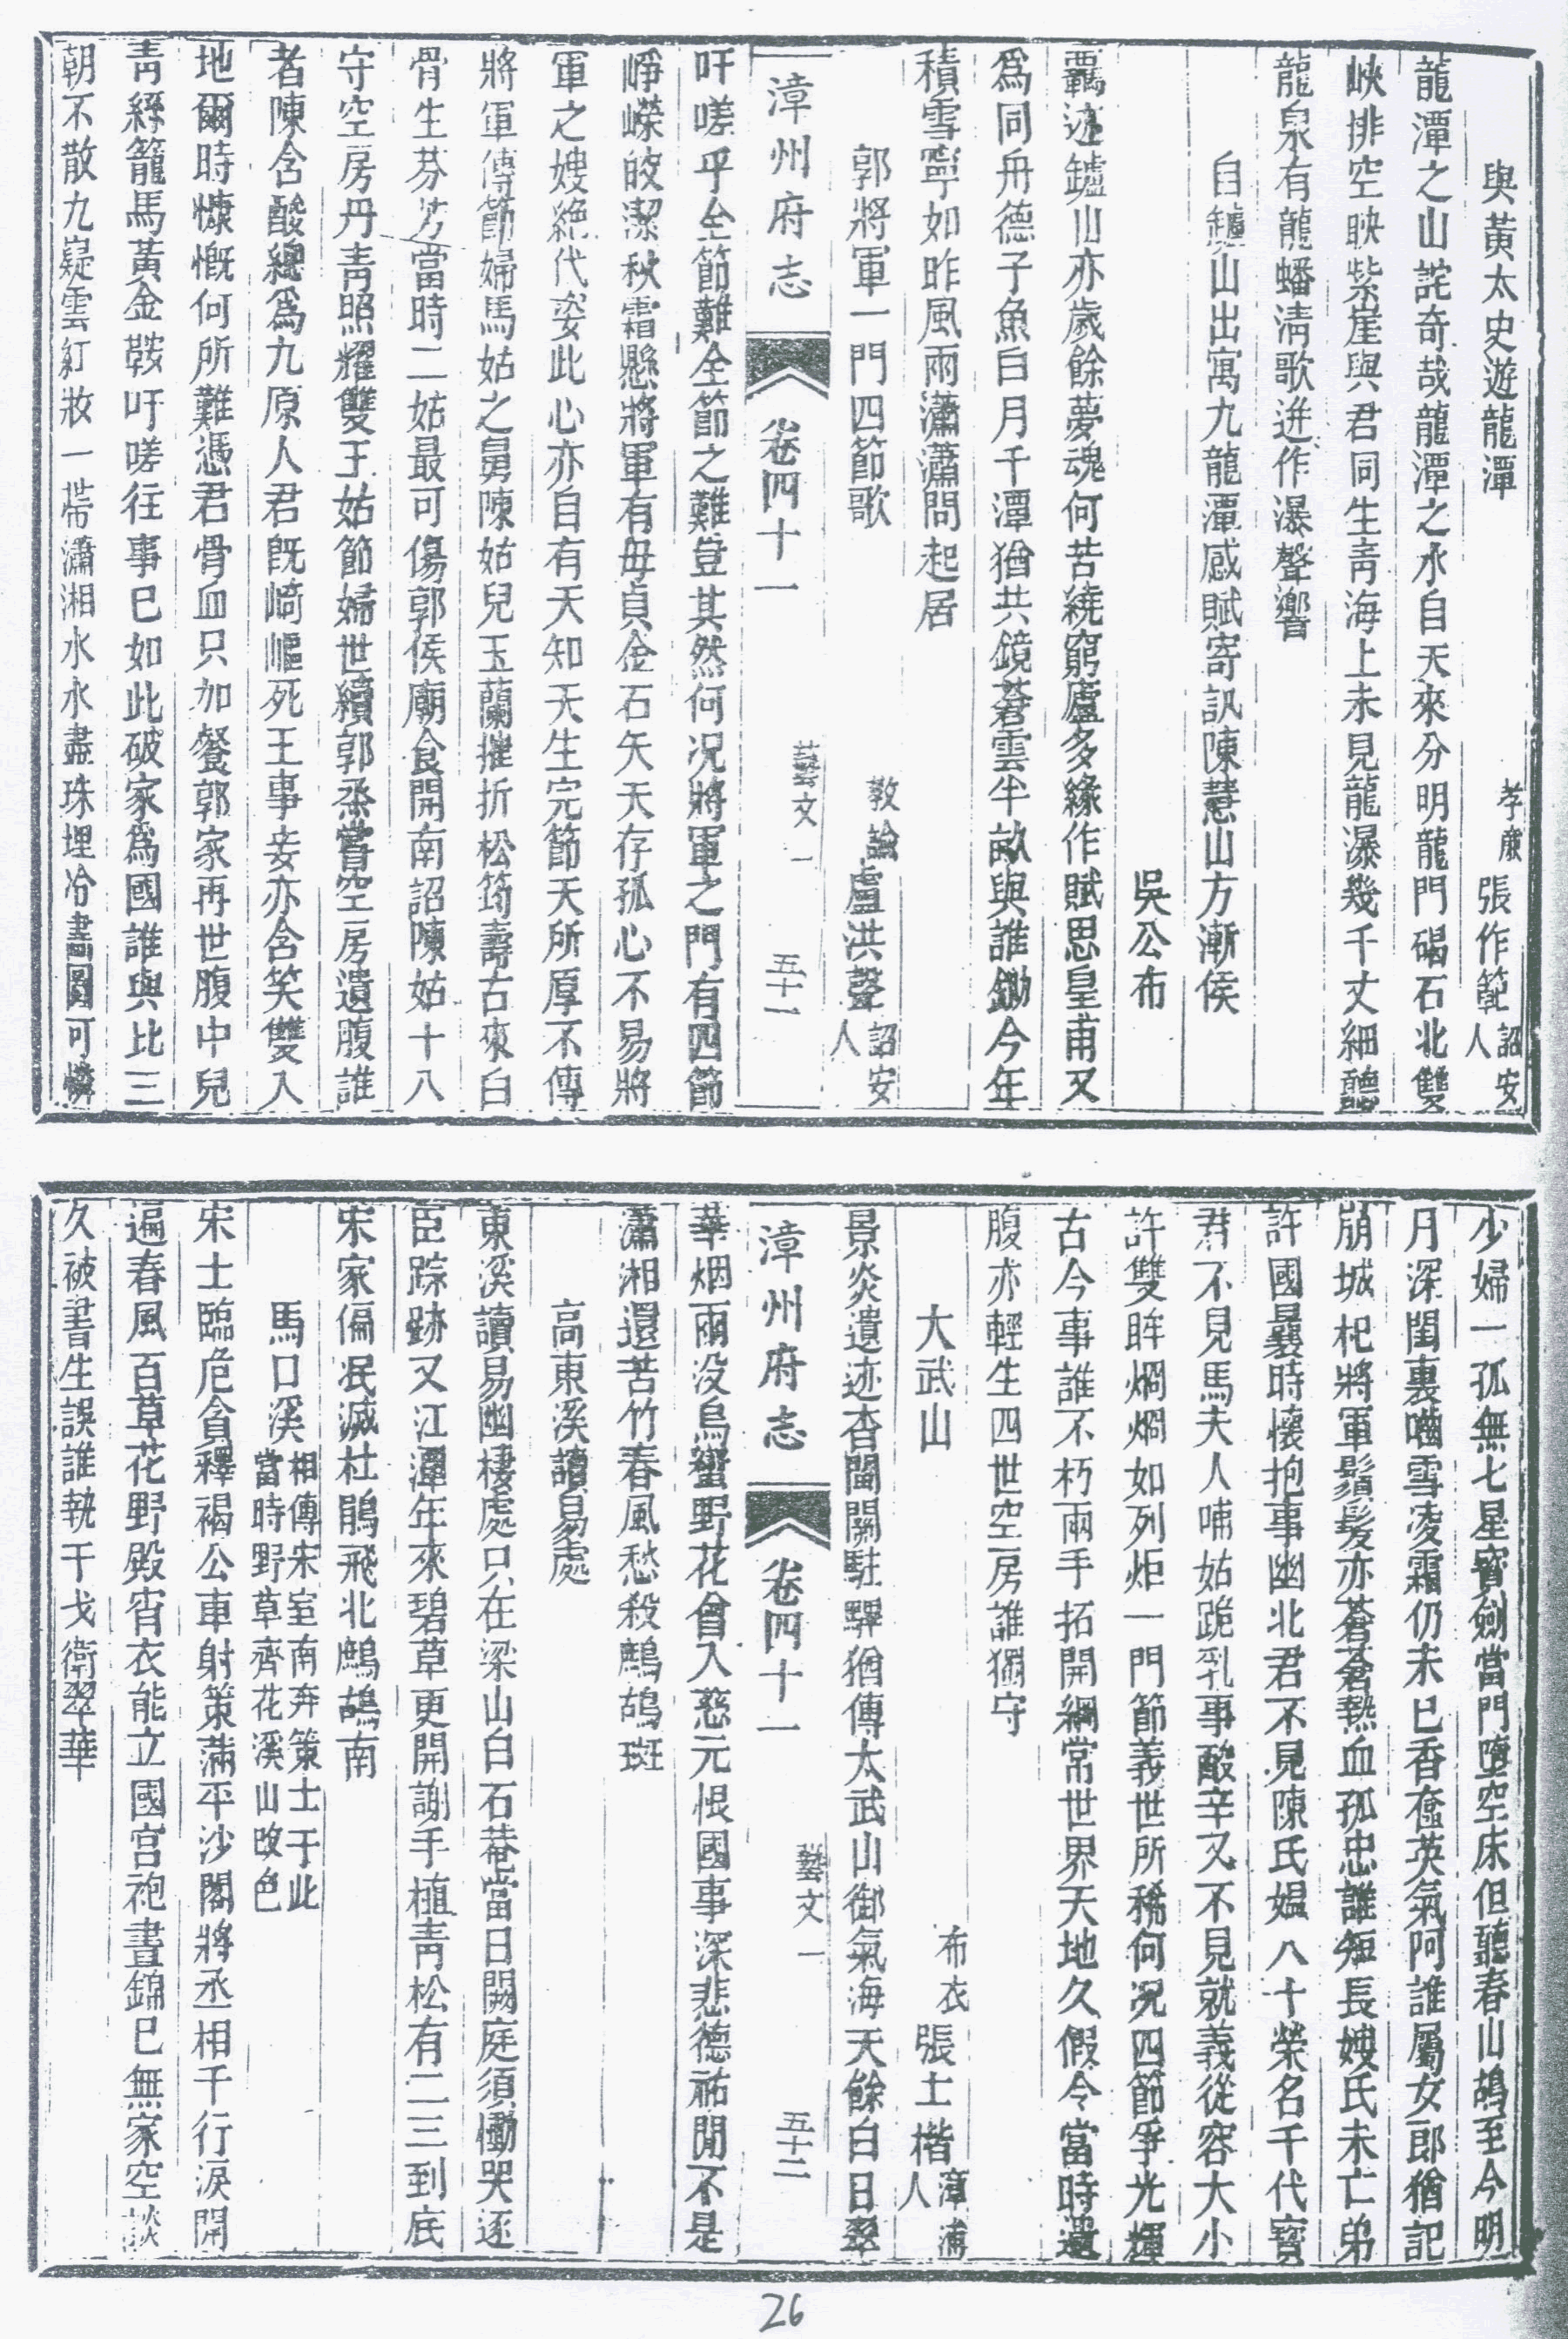 與黃太史遊龍潭　孝廉張作範詔安人
龍潭之山詫奇哉龍潭之水自天來分明龍門碣石北雙
峽排空映紫崖與君同生青海上未見龍瀑幾千丈細聽
龍泉有龍蟠清歌迸作瀑聲響
自鑪山出寓九龍潭感賦寄訊陳慧山方漸侯
吳公布
羈迹鑪山亦歲餘夢魂何苦繞窮廬多緣作賦思皇甫又
爲同舟德子魚白月千潭猶共鏡蒼雲半畝與誰鋤今年
積雪寧如昨風雨瀟瀟問起居
郭將軍一門四節歌　教諭盧洪聲詔安人
漳州府志　卷四十一　藝文一　五十一
吁嗟乎全節難全節之難豈其然何况將軍之門有四節
崢嶸皎潔秋霜懸將軍有毋貞金石矢天存孤心不易將
軍之嫂絶代姿此心亦自有天知天生完節天所厚不傳
將軍傳節婦馬姑之舅陳姑兒玉蘭摧折松筠壽古來白
骨生芬芳當時二姑最可傷郭侯廟食開南詔陳姑十八
守空房丹青照耀雙王姑節婦世續郭烝嘗空房遺腹誰
者陳含酸總爲九原人君旣崎嶇死王事妾亦含笑雙入
地爾時慷慨何所難憑君骨血只加餐郭家再世腹中兒
青絲籠馬黃金鞍吁嗟往事已如此破家爲國誰與比三
朝不散九嶷雲紅妝一帶瀟湘水水盡珠埋冷畵圖可憐
少婦一孤無七星寳劍當門墮空床但聽春山鴣至今明
月深閨裏嚙雪凌霜仍未已香奩英氣阿誰屬女郎猶記
崩城杞將軍鬚髮亦蒼蒼熱血孤忠誰短長嫂氏未亡弟
許國曩時懷抱事幽北君不見陳氏媪八十榮名千代寳
君不見馬夫人哺姑跪乳事酸辛又不見就義從容大小
許雙眸烱烱如列炬一門節義世所稀何况四節爭光輝
古今事誰不朽兩手拓開綱常世界天地久假令當時遺
腹亦輕生四世空房誰獨守
大武山　布衣張士楷漳浦人
景炎遺迹杳閩關駐驆猶傳太武山御氣海天餘白日翠
漳州府志　卷四十一　藝文一　五十二
華烟雨没烏蠻野花曾入慈元恨國事深悲德祐閒不是
瀟湘還苦竹春風愁殺鷓鴣斑
高東溪讀易處
東溪讀易幽棲處只在梁山白石菴當日闕庭須慟哭逐
臣踪跡又江潭年來碧草更開謝手植青松有二三到底
宋家偏泯滅杜鵑飛北鷓鴣南
馬口溪相傳宋室南奔策士于此當時野草齊花溪山改色
宋士臨危貟釋褐公車射策滿平沙閣將丞相千行淚開
遍春風百草花野殿宵衣能立國宮袍晝錦已無家空談
久被書生誤誰執干戈衛翠華
26